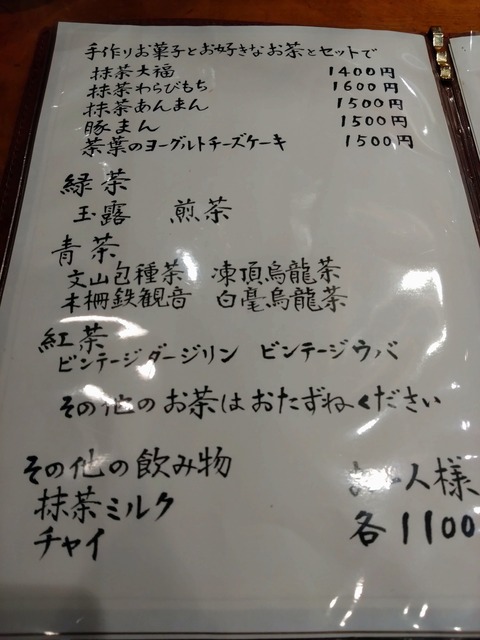 手作りお菓子とお好きなお茶とセットで
抹茶大福 1400円
抹茶わらびもち 1600円
抹茶あんまん 1500円
豚まん 1500円
茶葉のヨーグルトチーズケーキ 1500円
緑茶
玉露 煎茶
青茶
文山包種茶 凍頂烏龍茶
木柵鉄観音 白毫烏龍茶
紅茶
ビンテージダージリン ビンテージウバ
その他のお茶はおたずねください
その他の飲み物
抹茶ミルク
チャイ
人様
各1100